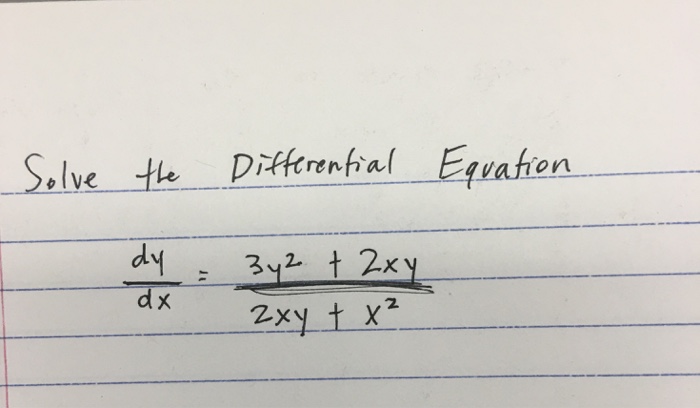 Solve the Differential Equation
dy/dx = (3y² + 2xy)/(2xy + x²)